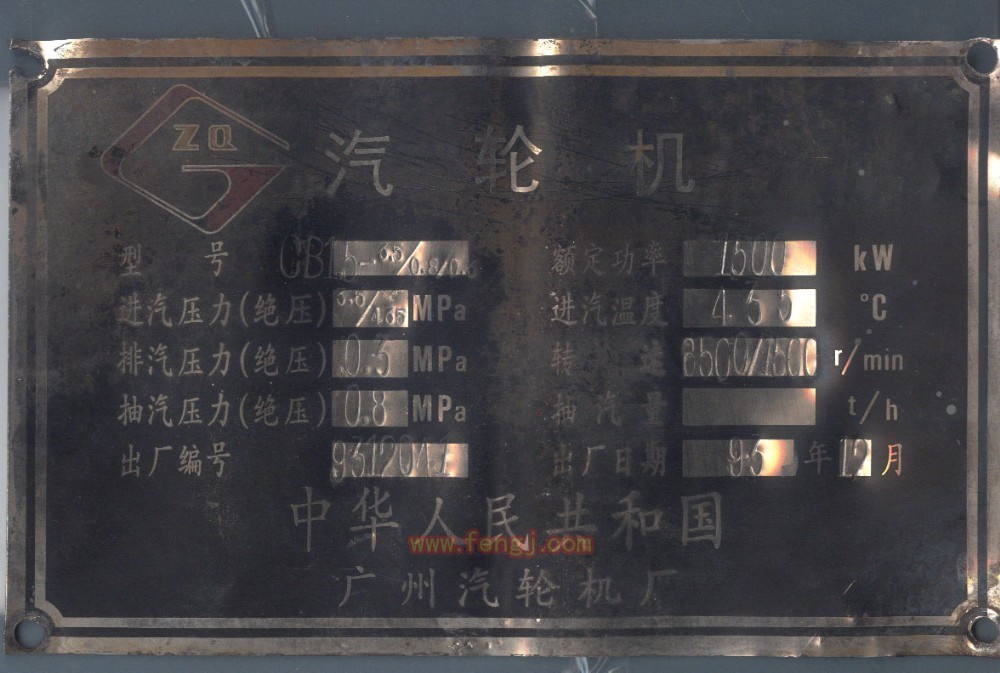 ZQ
汽轮机
型号 CB1.5- /0.8/0. 额定功率 1500 kW
进汽压力(绝压) MPa 进汽温度 435 °C
排汽压力(绝压) 0.5 MPa 转速 6500/1500 r/min
抽汽压力(绝压) 0.8 MPa 抽汽量 t/h
出厂编号 出厂日期 95年12月
中华人民共和国
www.fengj.com
广州汽轮机厂